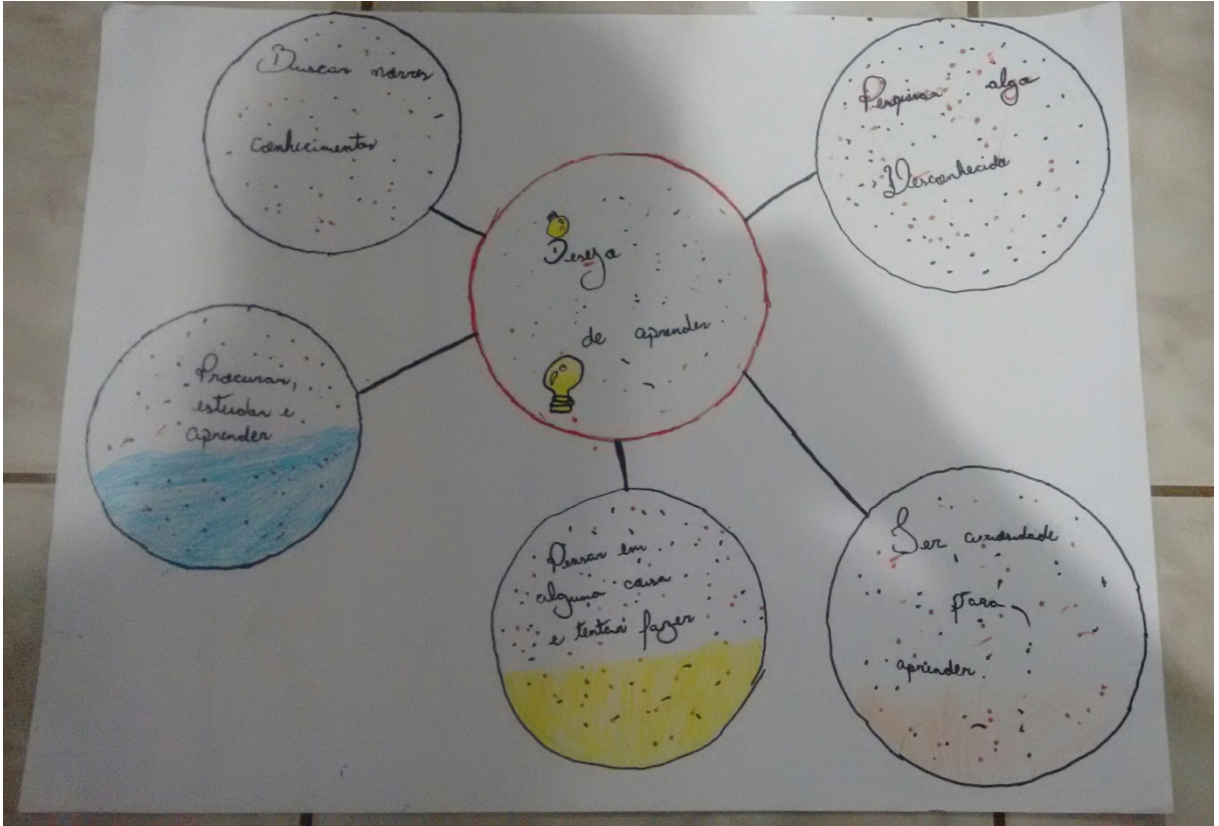 Buscar novos
conhecimentos
Pesquisar algo
Desconhecido
Desejo
de aprender
Procurar,
estudar e
aprender
Pensar em
alguma coisa
e tentar fazer
Ser curiosidade
para
aprender.